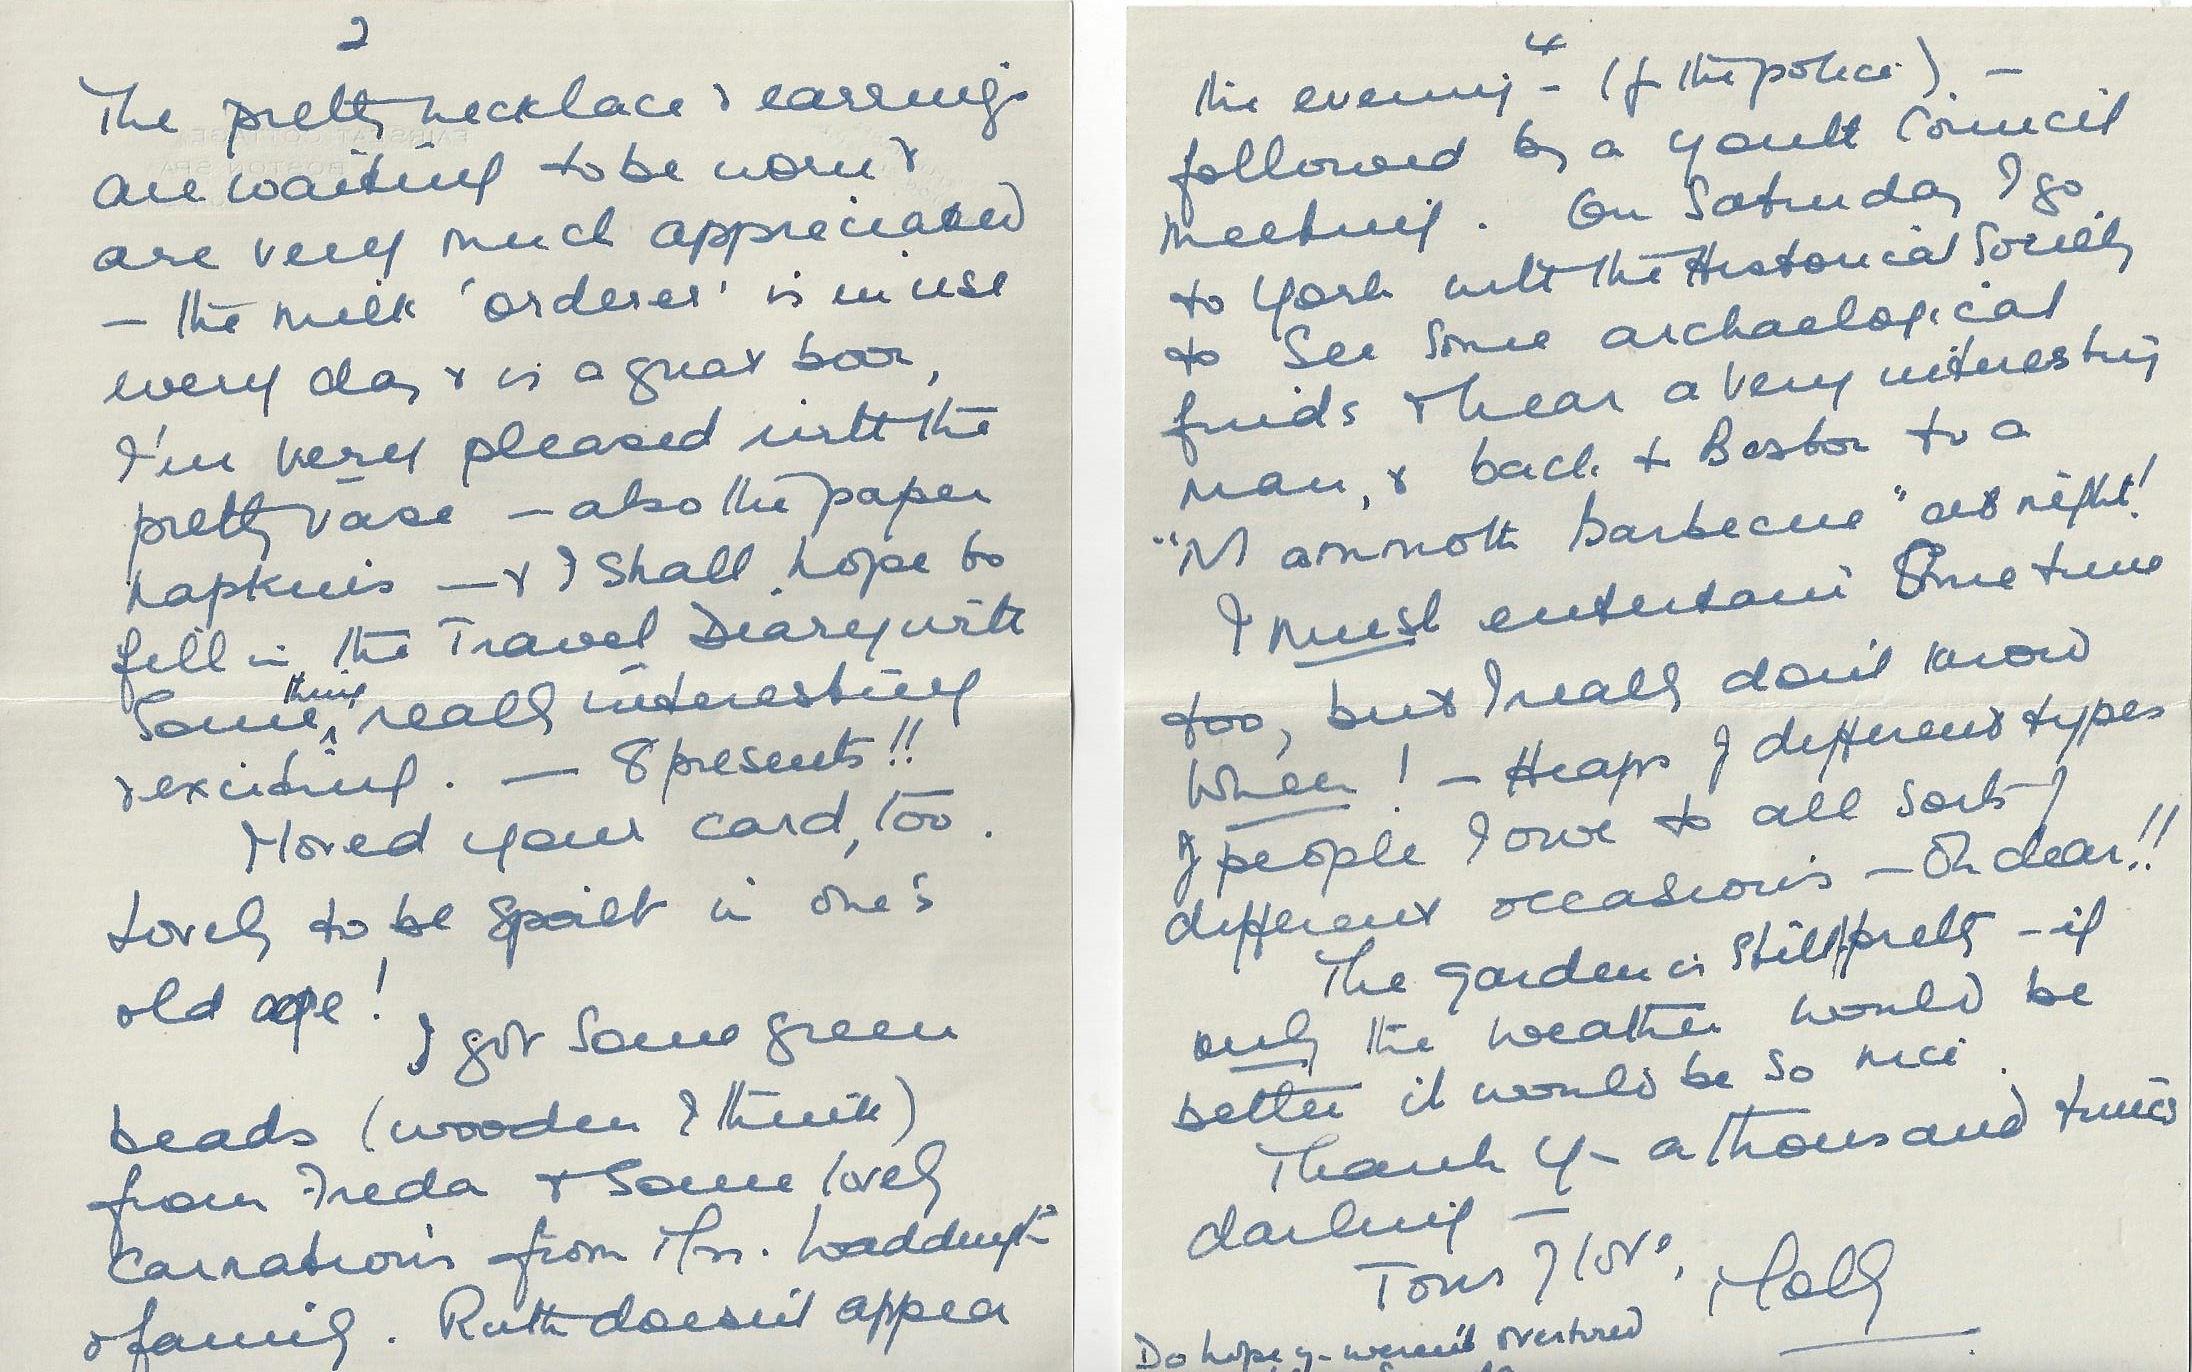 2
The pretty necklace & earrings
are waiting to be worn &
are very much appreciated
— the milk 'orderer' is in use
every day & is a great boon,
I'm very pleased with the
pretty vase — also the paper
napkins — & I shall hope to
fill in the Travel Diary with
some thing really interesting
& exciting. — 8 presents!!
Loved your card, too.
Lovely to be spoilt in one's
old age!
I got some green
beads (wooden I think)
from Freda & some lovely
carnations from Mrs. Waddington
& family. Ruth doesn't appear
FAIRSEAT COTTAGE
BOSTON SPA
4
the evening - (of the police) -
followed by a Youth Council
meeting. On Saturday I go
to York with the Historical Society
to see some archaelogical
finds & hear a very interesting
man, & back to Boston to a
"Mammoth Barbecue" at night!
I must entertain sometime
too, but I really don't know
when! - Heaps of different types
of people I owe to all sorts of
different occasions - Oh dear!!
The garden is still pretty - if
only the weather would be
better it would be so nice.
Thank y- a thousand times
darling —
Tons of love, Molly
Do hope y- weren't overtired